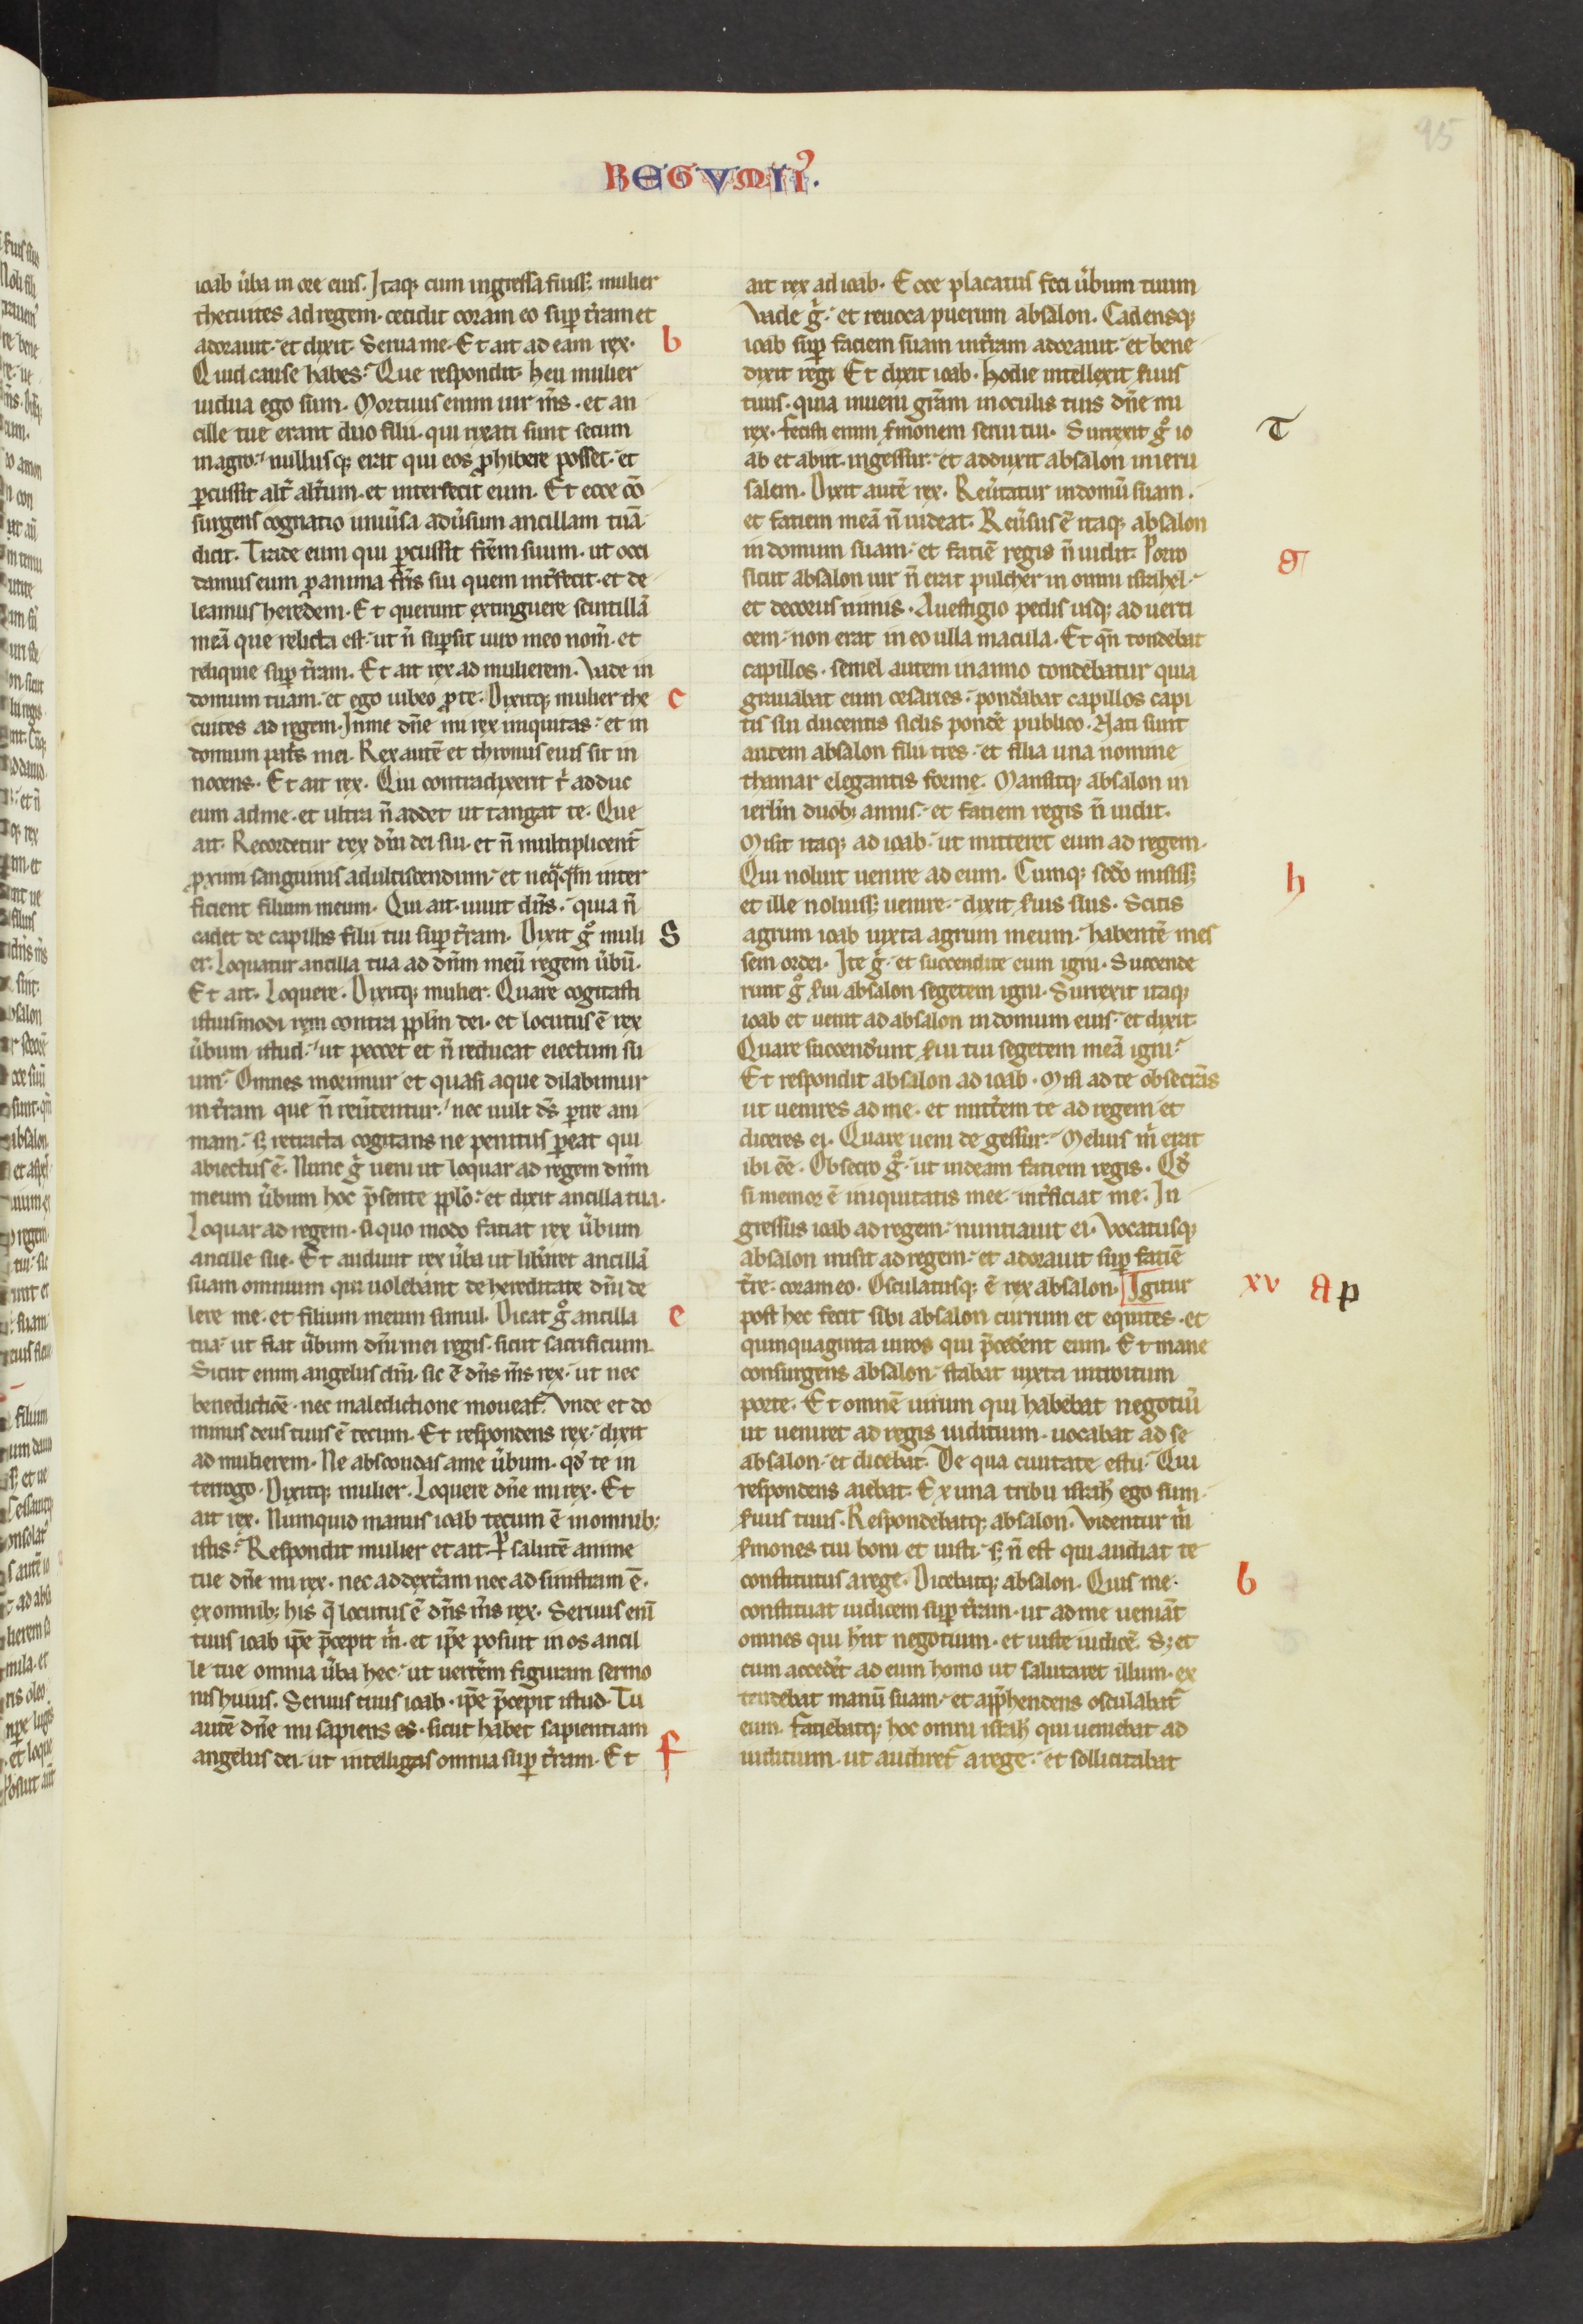 95
REGVM II⁹.
ioab ũba in ore eius. Itaq; cum ingressa fuiss; mulier
thecuites ad regem. cecidit coram eo suꝑ t̃ram et
adorauit. et dixit. Serua me. Et ait ad eam rex.
Quid cause habes? Que respondit. heu mulier
uidua ego sum. Mortuus enim uir m̃s. et an
cille tue erant duo filii. qui rixati sunt secum
in agro. nullusq; erat qui eos ꝓhibere posset. et
ꝑcussit alt̃ alt̃um. et interfecit eum. Et ecce cõ
surgens cognatio uniũsa adũsum ancillam tuã
dicit. Trade eum qui ꝑcussit fr̃em suum. ut occi
damus eum ꝓ anima fr̃is sui quem int̃fecit. et de
leamus heredem. Et querunt extinguere scintillã
meã que relicta est. ut ñ suꝑsit uiro meo nom̃. et
reliquie suꝑ t̃ram. Et ait rex ad mulierem. Vade in
domum tuam. et ego iubeo ꝓ te. Dixitq; mulier the
cuites ad regem. In me dñe mi rex iniquitas. et in
domum pat̃s mei. Rex autẽ et thronus eius sit in
nocens. Et ait rex. Qui contradixerit t̃ adduc
eum ad me. et ultra ñ addet ut tangat te. Que
ait. Recordetur rex dñi dei sui. et ñ multiplicent̃
ꝓximi sanguinis ad ulciscendum. et neq̃q̃m inter
ficient filium meum. Qui ait. uiuit dñs. quia ñ
cadet de capillis filii tui suꝑ t̃ram. Dixit gͦ muli
er. Loquatur ancilla tua ad dñm meũ regem ũbũ.
Et ait. Loquere. Dixitq; mulier. Quare cogitasti
istiusmodi rem contra pplm̃ dei. et locutus ẽ rex
ũbum istud. ut peccet et ñ reducat eiectum su
um? Omnes morimur et quasi aque dilabimur
in t̃ram que ñ reũtentur. nec uult ds̃ ꝑire ani
mam. s; retracta cogitans ne penitus ꝑeat qui
abiectus ẽ. Nunc gͥ ueni ut loquar ad regem dñm
meum ũbum hoc p̃sente pplõ. et dixit ancilla tua.
Loquar ad regem. si quo modo faciat rex ũbum
ancille sue. Et audiuit rex ũba ut lib̃aret ancillã
suam omnium qui uolebant de hereditate dñi de
lere me. et filium meum simul. Dicat gͦ ancilla
tua. ut fiat ũbum dñi mei regis. sicut sacrificium.
Sicut enim angelus dñi. sic ẽ dñs m̃s rex. ut nec
benedictiõe. nec maledictione moueat̃. Vnde et do
minus deus tuus ẽ tecum. Et respondens rex. dixit
ad mulierem. Ne abscondas a me ũbum. qd̾ te in
terrogo. Dixitq; mulier. Loquere dñe mi rex. Et
ait rex. Numquid manus ioab tecum ẽ in omnib;
istis? Respondit mulier et ait. Ꝑ salutẽ anime
tue dñe mi rex. nec ad dext̃am nec ad sinistram ẽ.
ex omnib; his q̃ locutus ẽ dñs m̃s rex. Seruus enĩ
tuus ioab ip̃e p̃cepit m̃. et ip̃e posuit in os ancil
le tue omnia ũba hec. ut uert̃em figuram sermo
nis huius. Seruus tuus ioab. ip̃e p̃cepit istud. Tu
autẽ dñe mi sapiens es. sicut habet sapientiam
angelus dei. ut intelligas omnia suꝑ t̃ram. Et
b
c
S
e
f
ait rex ad ioab. Ecce placatus feci ũbum tuum
Vade gͥ. et reuoca puerum absalon. Cadensq;
ioab suꝑ faciem suam in t̃ram adorauit. et bene
dixit regi Et dixit ioab. Hodie intellexit ẜuus
tuus. quia inueni gr̃am in oculis tuis dñe mi
rex. fecisti enim ẜmonem serui tui. Surrexit gͦ io
ab et abiit in gessur. et adduxit absalon in ieru
salem. Dixit autẽ rex. Reũtatur in domũ suam.
et faciem meã ñ uideat. Reũsus ẽ itaq; absalon
in domum suam. et faciẽ regis ñ uidit. Porro
sicut absalon uir ñ erat pulcher in omni israhel.
et decorus nimis. A uestigio pedis usq; ad uerti
cem. non erat in eo ulla macula. Et qñ tondebat
capillos. semel autem in anno tondebatur quia
grauabat eum cesaries. pond̾abat capillos capi
tis sui ducentis siclis pond̾e publico. Nati sunt
autem absalon filii tres. et filia una nomine
thamar elegantis forme. Mansitq; absalon in
ierlm̃ duob; annis. et faciem regis ñ uidit.
Misit itaq; ad ioab. ut mitteret eum ad regem.
Qui noluit uenire ad eum. Cumq; scd̾o misiss;
et ille noluiss; uenire. dixit ẜuis suis. Scitis
agrum ioab iuxta agrum meum. habentẽ mes
sem ordei. Ite gͥ. et succendite eum igni. Succende
runt gͦ ẜui absalon segetem igni. Surrexit itaq;
ioab et uenit ad absalon in domum eius. et dixit.
Quare succend̾unt ẜui tui segetem meã igni?
Et respondit absalon ad ioab. Misi ad te obsecrãs
ut uenires ad me. et mitt̃em te ad regem et
diceres ei. Quare ueni de gessur? Melius m̃ erat
ibi eẽ. Obsecro gͦ. ut uideam faciem regis. Qd̾
si memor ẽ iniquitatis mee. int̃ficiat me. In
gressus ioab ad regem. nuntiauit ei. Vocatusq;
absalon intrauit ad regem. et adorauit suꝑ faciẽ
t̃re. coram eo. Osculatusq; ẽ rex absalon. Igitur
post hec fecit sibi absalon currum et equites. et
quinquaginta uiros qui p̃ced̾ent eum. Et mane
consurgens absalon. stabat iuxta introitum
porte. Et omnẽ uirum qui habebat negotiũ
ut ueniret ad regis iuditium. uocabat ad se
absalon. et dicebat. De qua ciuitate es tu? Qui
respondens aiebat. Ex una tribu isrl̃ ego sum.
ẜuus tuus. Respondebatq; absalon. Videntur m̃
ẜmones tui boni et iusti. s; ñ est qui audiat te
constitutus a rege. Dicebatq; absalon. Quis me.
constituat iudicem suꝑ t̃ram. ut ad me ueniãt
omnes qui hñt negotium. et iuste iudicẽ. S; et
cum acced̾et ad eum homo ut salutaret illum. ex
tendebat manũ suam. et app̃hendens osculabat̃
eum. Faciebatq; hoc omni isrl̃ qui ueniebat ad
iuditium. ut audiret̃ a rege. et sollicitabat
T
g
h
xv a p
b